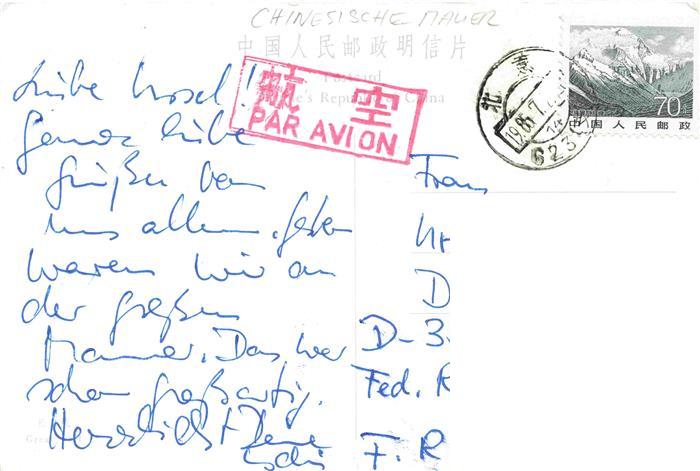 CHINESISCHE MAUER
中国人民邮政明信片
Postcard
The People's Republic of China
航空
PAR AVION
70
中国人民邮政
北京
Liebe Ursel!
Ganz liebe
Grüße von
uns allen. Gestern
waren wir an
der großen
Mauer. Das war
schon großartig.
Herzlichst Deine
Frau
D
D-3
Fed. R
F. R